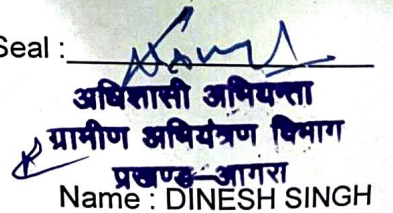 Seal :
अधिशासी अभियन्ता
ग्रामीण अभियंत्रण विभाग
प्रखण्ड-आगरा
Name : DINESH SINGH